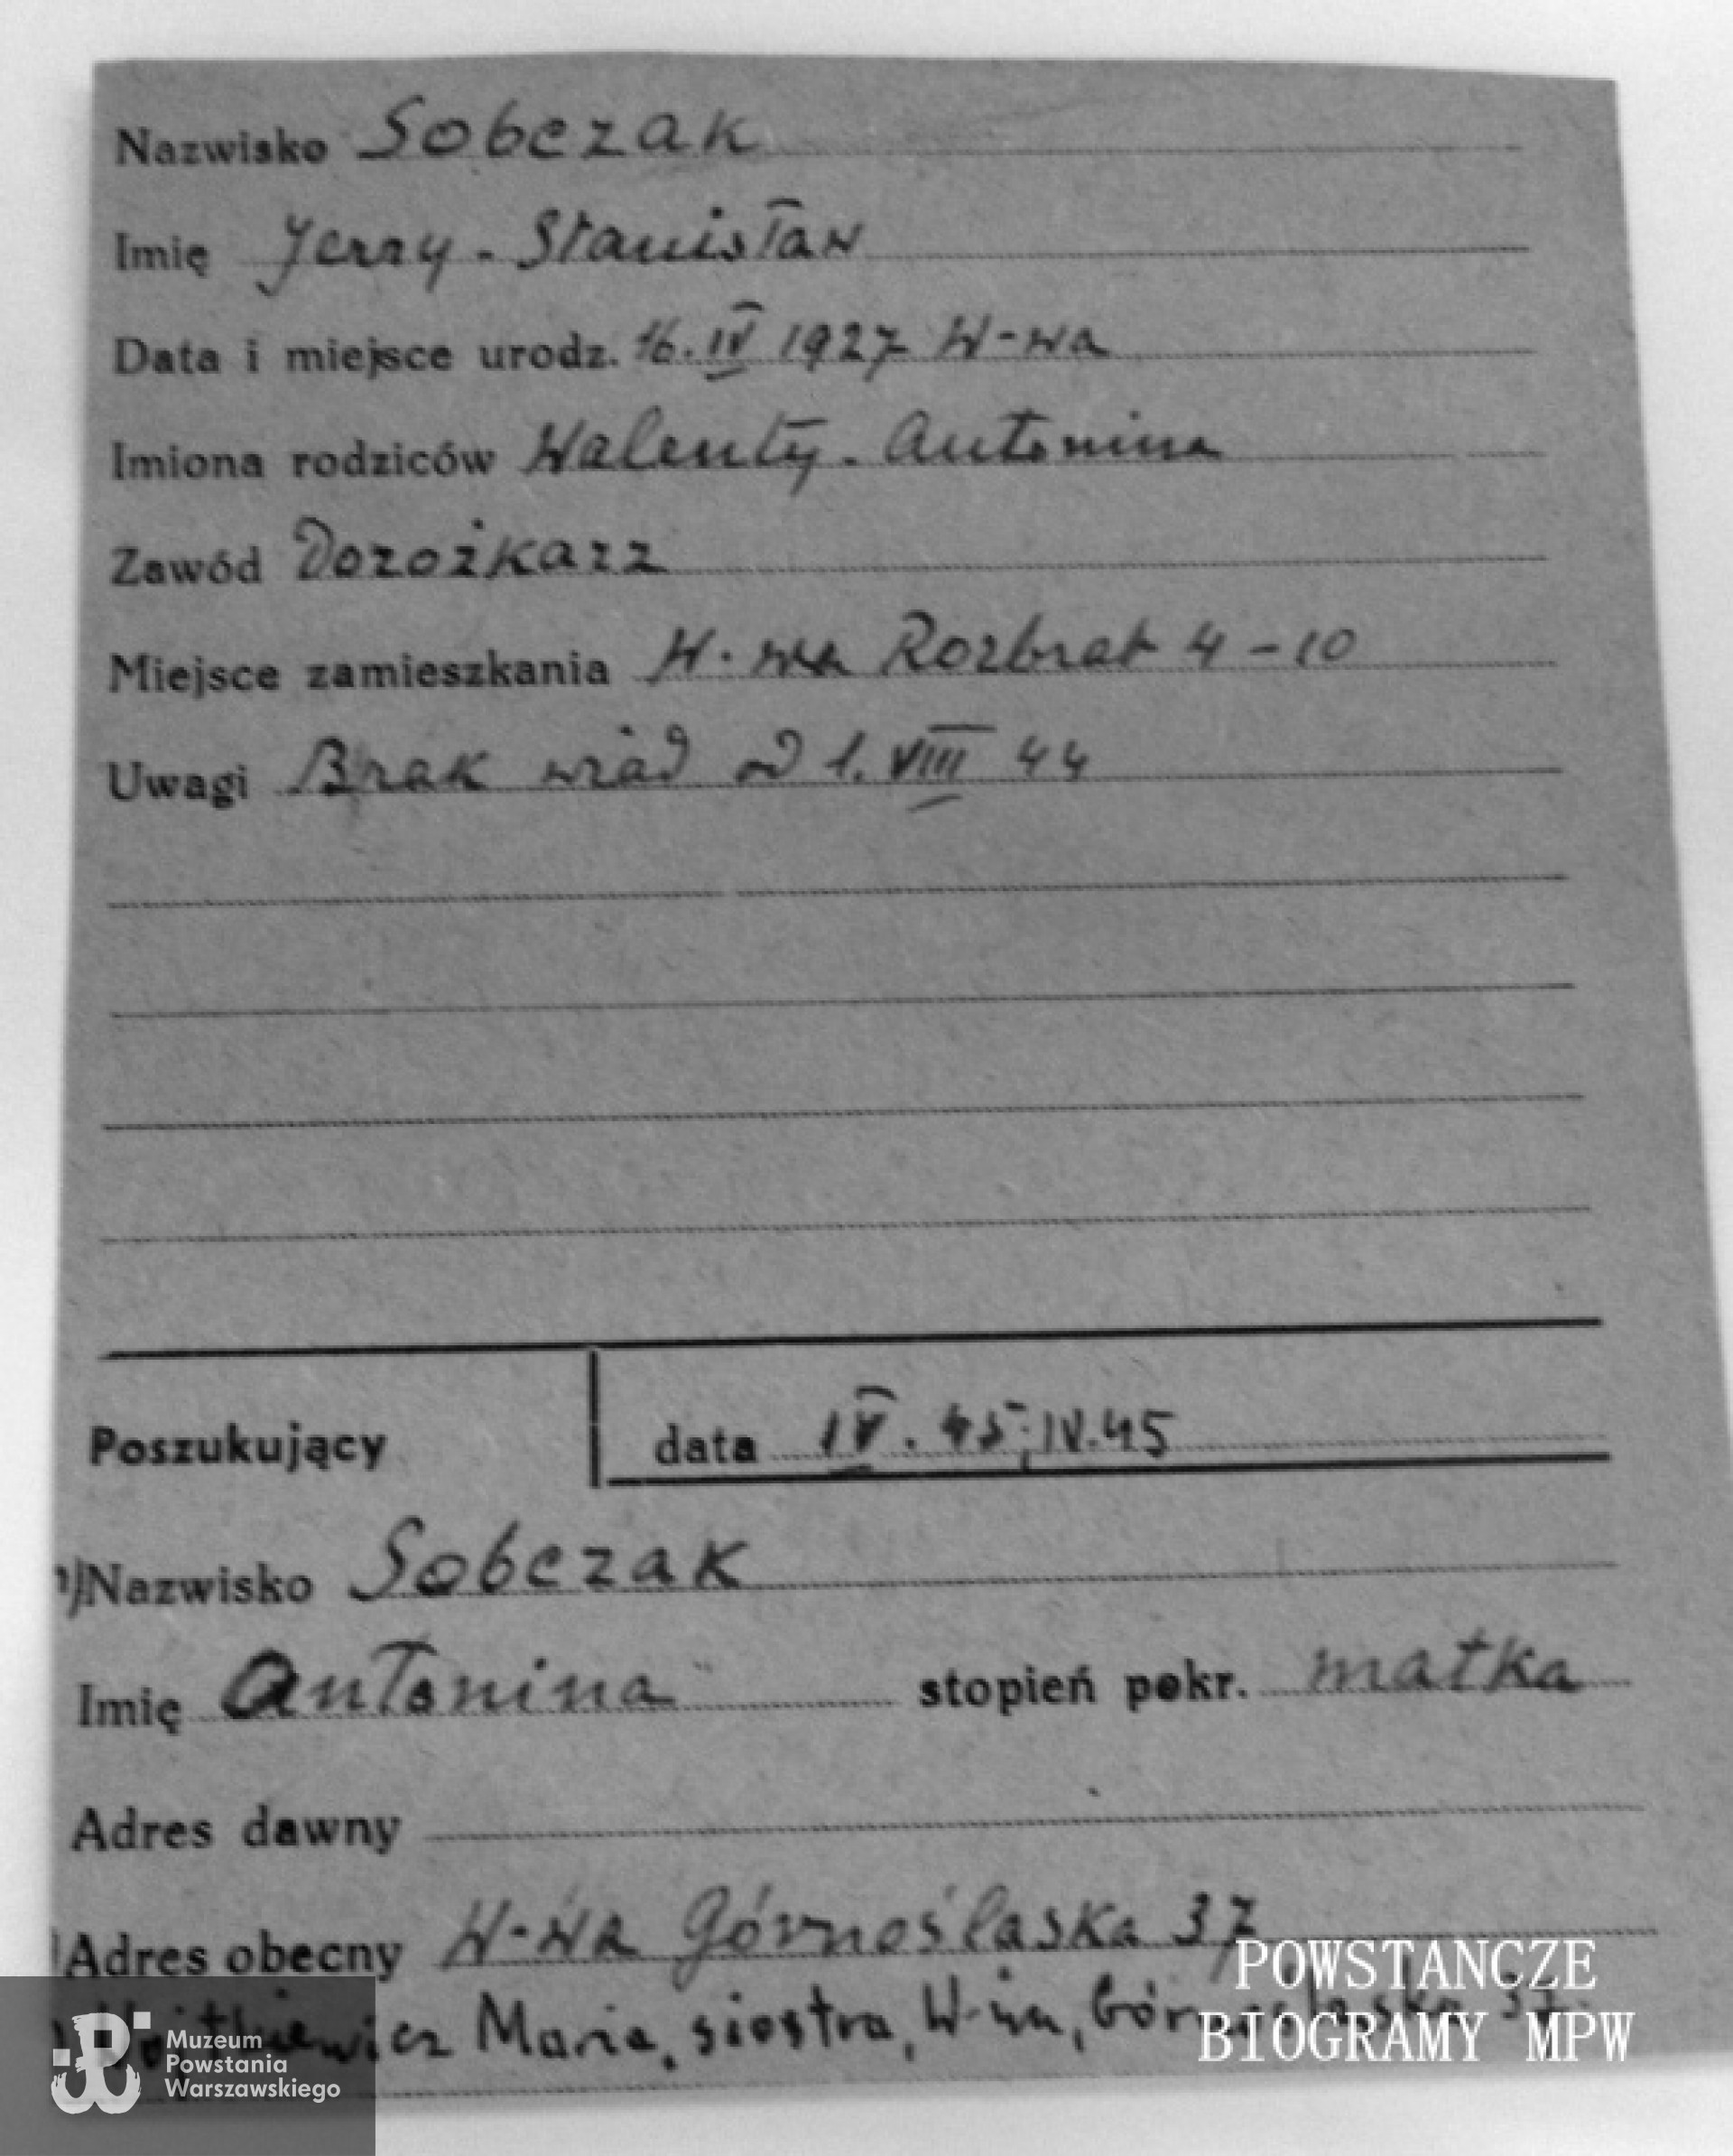 Nazwisko Sobczak
Imię Jerzy - Stanisław
Data i miejsce urodz. 16. IV 1927 W-wa
Imiona rodziców Walenty - Antonina
Zawód Dorożkarz
Miejsce zamieszkania W-wa Rozbrat 4 - 10
Uwagi Brak wiad od 1. VIII 44
Poszukujący data IV. 45; IV.45
1) Nazwisko Sobczak
Imię Antonina stopień pokr. matka
Adres dawny
Adres obecny W-wa Górnośląska 37
Maria, siostra, W-wa, Górnośląska 37
Muzeum
Powstania
Warszawskiego
POWSTANCZE
BIOGRAMY MPW